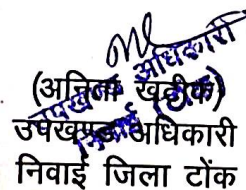 (अनिता खटीक)
उपखण्ड अधिकारी
निवाई जिला टोंक
उपखण्ड अधिकारी